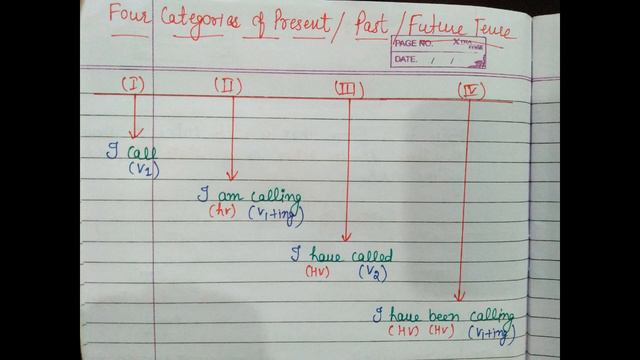 Four Categories of Present / Past / Future Tense
PAGE NO. XTRA
DATE. / /
(I) (II) (III) (IV)
I call
(V1)
I am calling
(hv) (V1+ing)
I have called
(HV) (V2)
I have been calling
(HV) (HV) (V1+ing)